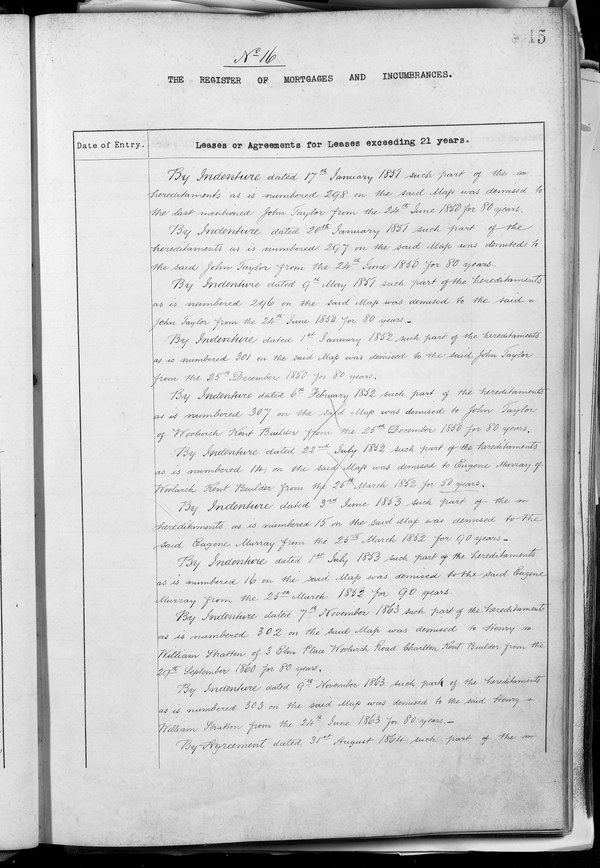 15
No 16
THE REGISTER OF MORTGAGES AND INCUMBRANCES.
Date of Entry.
Leases or Agreements for Leases exceeding 21 years.
By Indenture dated 17th January 1851 such part of the
hereditaments as is numbered 298 on the said Map was demised to
the last mentioned John Taylor from the 24th June 1850 for 80 years.
By Indenture dated 20th January 1851 such part of the
hereditaments as is numbered 297 on the said Map was demised to
the said John Taylor from the 24th June 1850 for 80 years.
By Indenture dated 9th May 1851 such part of the hereditaments
as is numbered 296 on the said Map was demised to the said
John Taylor from the 24th June 1850 for 80 years.
By Indenture dated 1st January 1852 such part of the hereditaments
as is numbered 301 on the said Map was demised to the said John Taylor
from the 25th December 1850 for 80 years.
By Indenture dated 6th February 1852 such part of the hereditaments
as is numbered 307 on the said Map was demised to John Taylor
of Woolwich Kent Builder from the 25th December 1850 for 80 years.
By Indenture dated 22nd July 1852 such part of the hereditaments
as is numbered 14 on the said Map was demised to Eugene Murray of
Woolwich Kent Builder from the 25th March 1852 for 50 years.
By Indenture dated 3rd June 1853 such part of the
hereditaments as is numbered 15 on the said Map was demised to the
said Eugene Murray from the 25th March 1852 for 90 years
By Indenture dated 1st July 1853 such part of the hereditaments
as is numbered 16 on the said Map was demised to the said Eugene
Murray from the 25th March 1852 for 90 years.
By Indenture dated 7th November 1863 such part of the hereditaments
as is numbered 302 on the said Map was demised to Henry
William Stratton of 3 Elm Place Woolwich Road Charlton Kent Builder from the
29th September 1860 for 80 years.
By Indenture dated 9th November 1863 such part of the hereditaments
as is numbered 303 on the said Map was demised to the said Henry
William Stratton from the 24th June 1863 for 80 years.
By Agreement dated 31st August 1864 such part of the